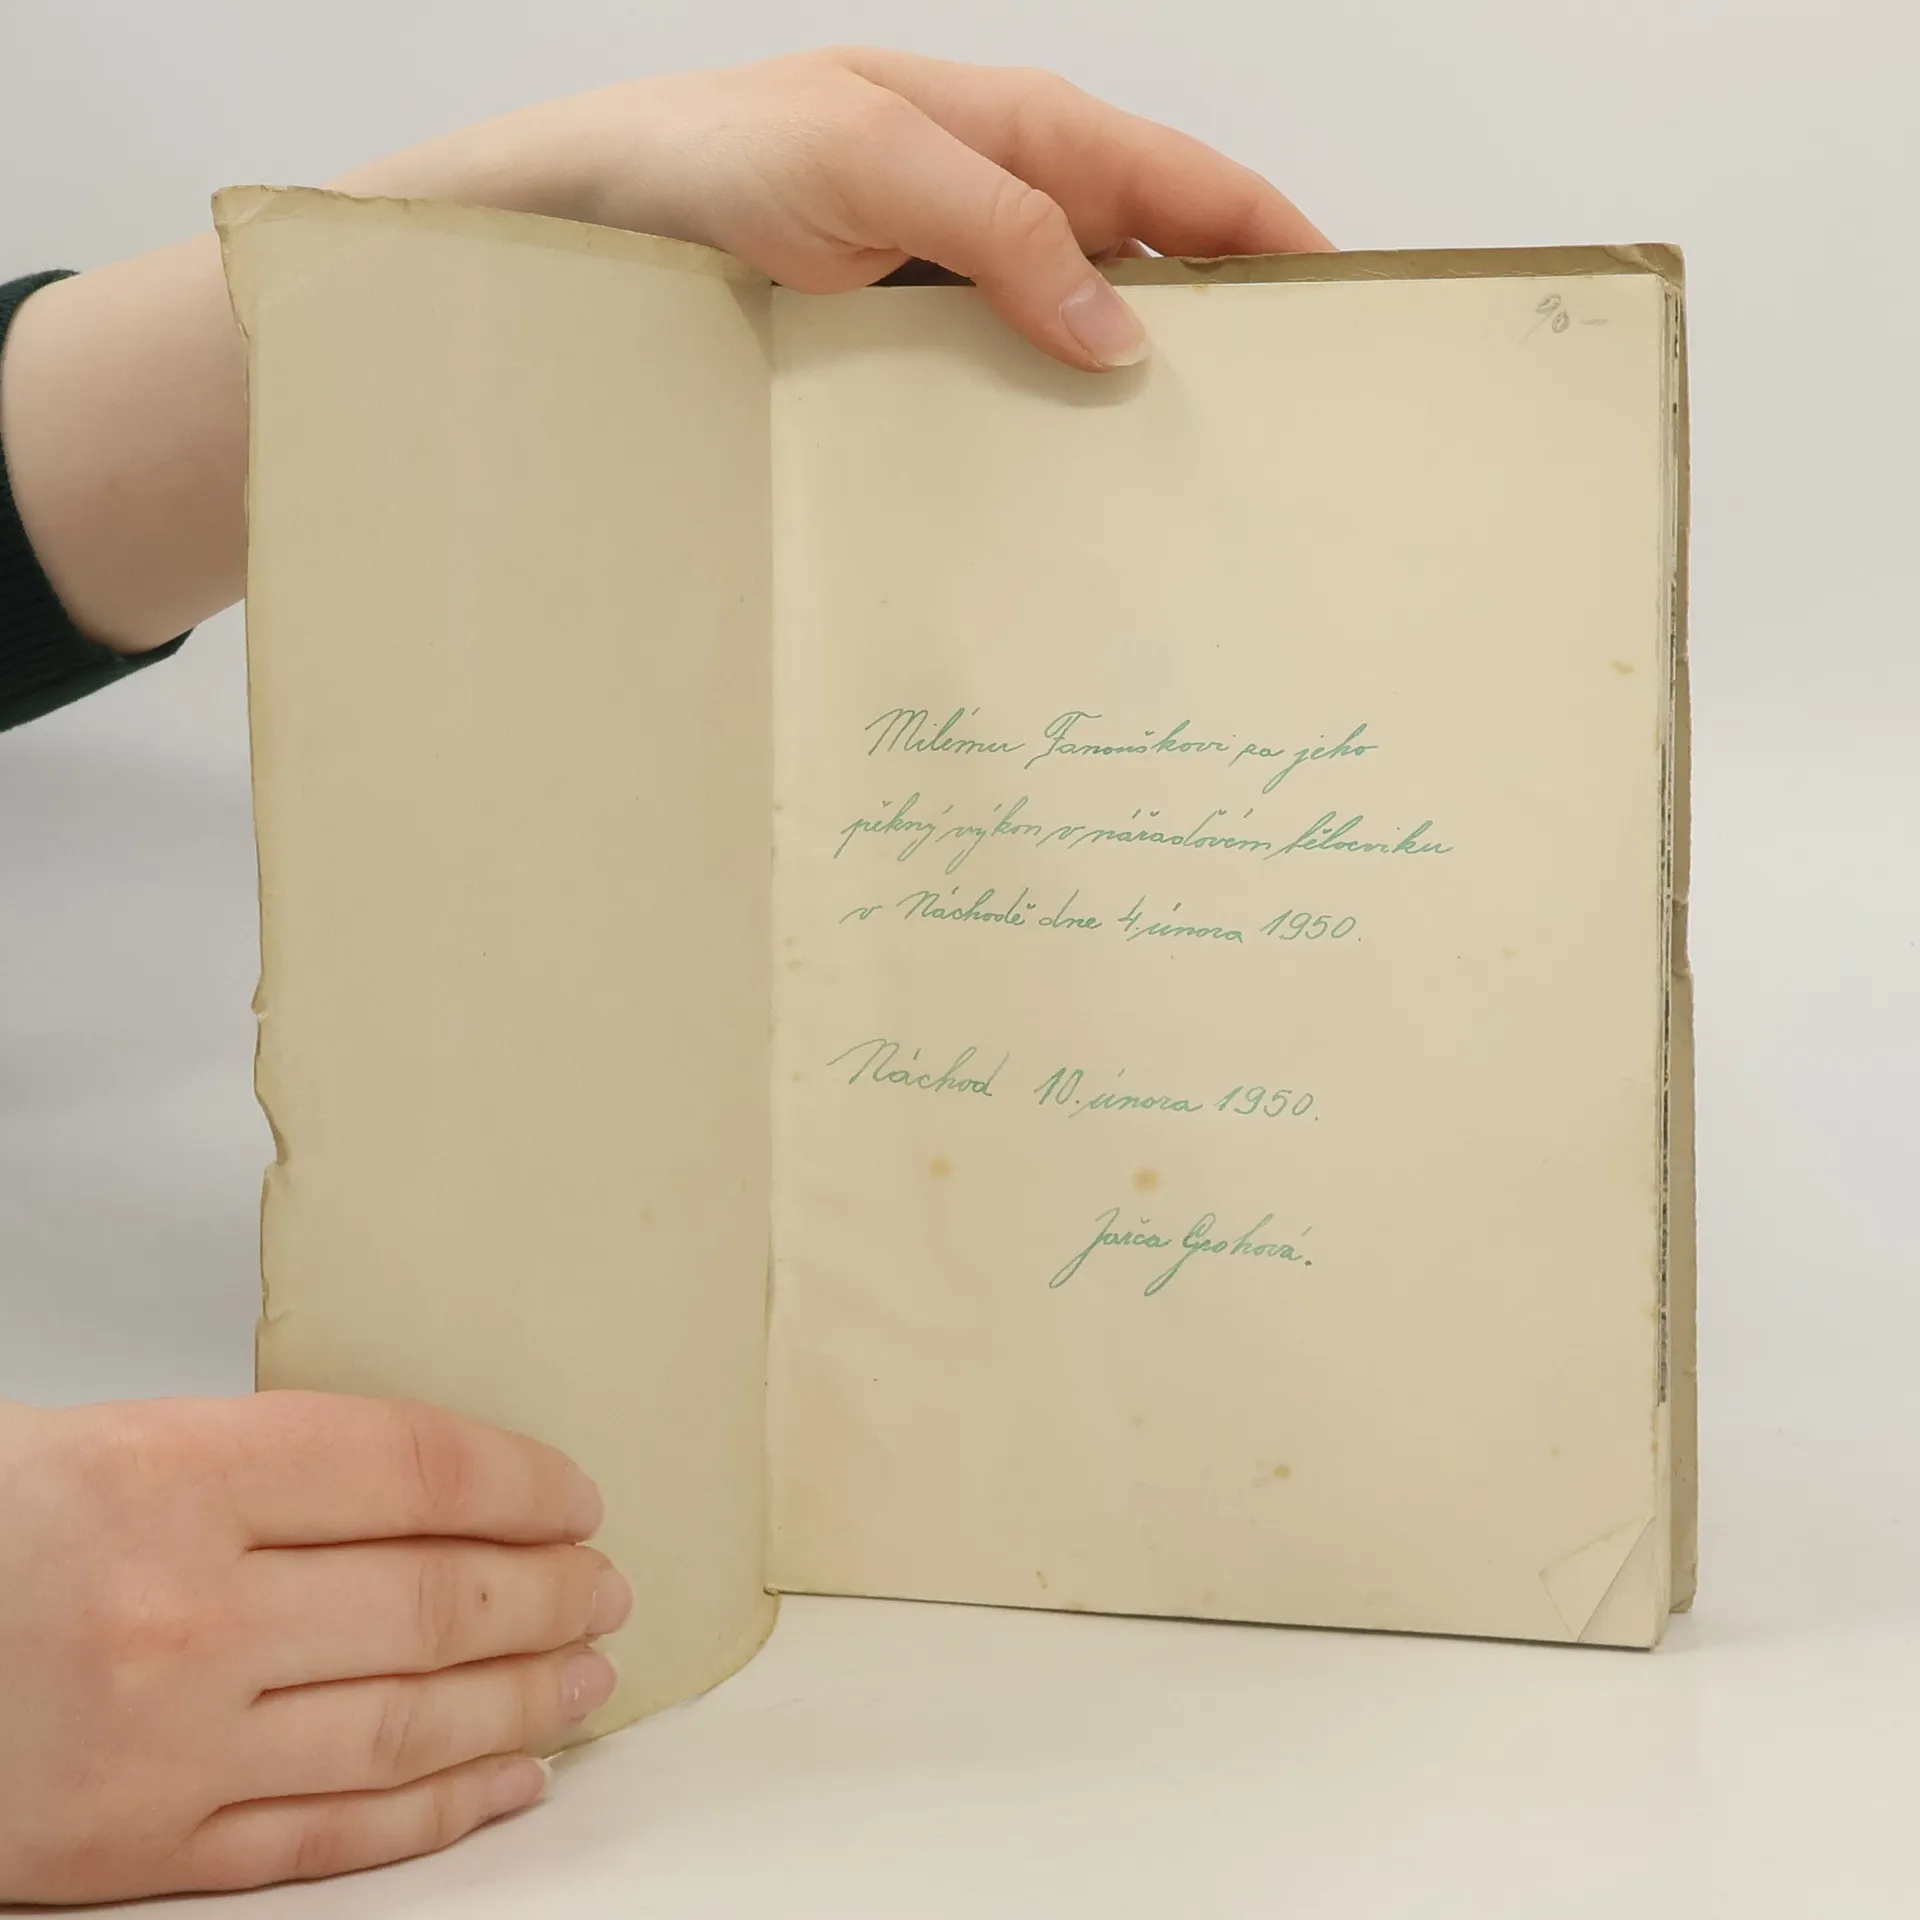 90-
Milému Fanouškovi za jeho
pěkný výkon v nářaďovém tělocviku
v Náchodě dne 4. února 1950.
Náchod 10. února 1950.
Jarča